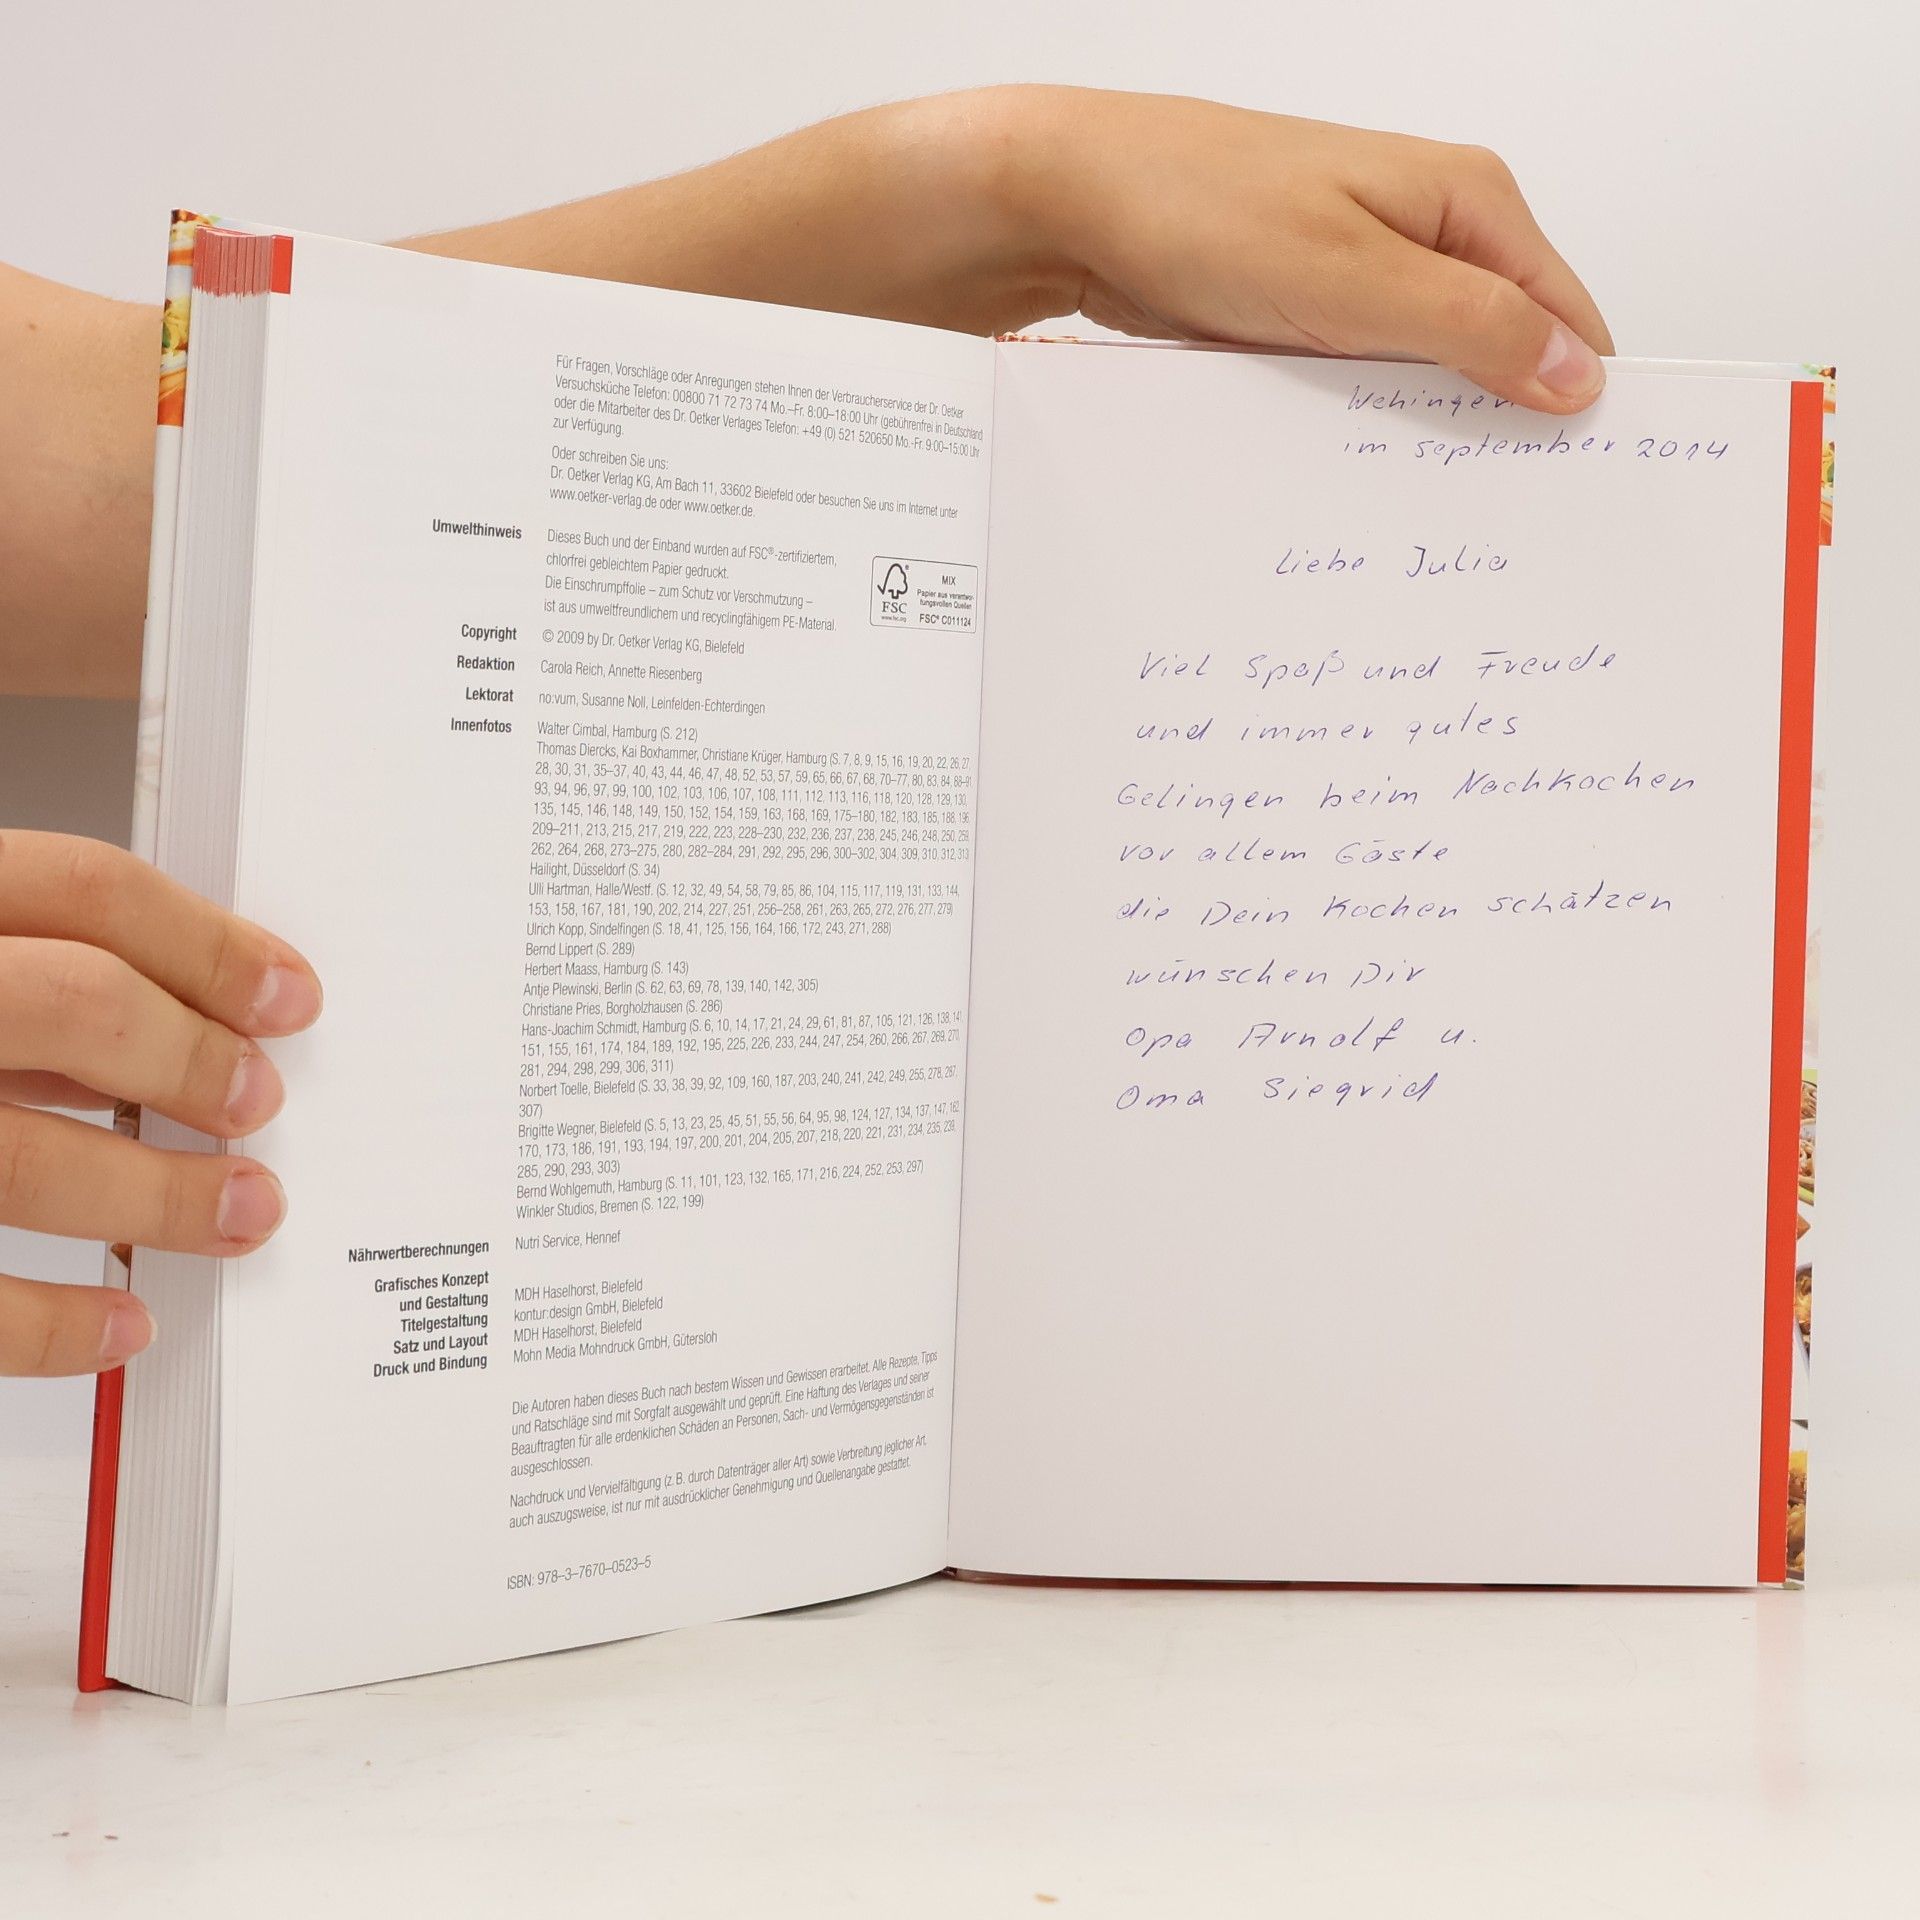 Für Fragen, Vorschläge oder Anregungen stehen Ihnen der Verbraucherservice der Dr. Oetker
Versuchsküche Telefon: 00800 71 72 73 74 Mo.–Fr. 8:00–18:00 Uhr (gebührenfrei in Deutschland)
oder die Mitarbeiter des Dr. Oetker Verlages Telefon: +49 (0) 521 520650 Mo.-Fr. 9:00–15:00 Uhr
zur Verfügung.
Oder schreiben Sie uns:
Dr. Oetker Verlag KG, Am Bach 11, 33602 Bielefeld oder besuchen Sie uns im Internet unter
www.oetker-verlag.de oder www.oetker.de.
Umwelthinweis Dieses Buch und der Einband wurden auf FSC®-zertifiziertem,
chlorfrei gebleichtem Papier gedruckt.
Die Einschrumpffolie – zum Schutz vor Verschmutzung –
ist aus umweltfreundlichem und recyclingfähigem PE-Material.
FSC
www.fsc.org
MIX
Papier aus verantwor-
tungsvollen Quellen
FSC® C011124
Copyright © 2009 by Dr. Oetker Verlag KG, Bielefeld
Redaktion Carola Reich, Annette Riesenberg
Lektorat no:vum, Susanne Noll, Leinfelden-Echterdingen
Innenfotos Walter Cimbal, Hamburg (S. 212)
Thomas Diercks, Kai Boxhammer, Christiane Krüger, Hamburg (S. 7, 8, 9, 15, 16, 19, 20, 22, 26, 27,
28, 30, 31, 35–37, 40, 43, 44, 46, 47, 48, 52, 53, 57, 59, 65, 66, 67, 68, 70–77, 80, 83, 84, 88–91,
93, 94, 96, 97, 99, 100, 102, 103, 106, 107, 108, 111, 112, 113, 116, 118, 120, 128, 129, 130,
135, 145, 146, 148, 149, 150, 152, 154, 159, 163, 168, 169, 175–180, 182, 183, 185, 188, 196,
209–211, 213, 215, 217, 219, 222, 223, 228–230, 232, 236, 237, 238, 245, 246, 248, 250, 259,
262, 264, 268, 273–275, 280, 282–284, 291, 292, 295, 296, 300–302, 304, 309, 310, 312, 313
Hailight, Düsseldorf (S. 34)
Ulli Hartman, Halle/Westf. (S. 12, 32, 49, 54, 58, 79, 85, 86, 104, 115, 117, 119, 131, 133, 144,
153, 158, 167, 181, 190, 202, 214, 227, 251, 256–258, 261, 263, 265, 272, 276, 277, 279)
Ulrich Kopp, Sindelfingen (S. 18, 41, 125, 156, 164, 166, 172, 243, 271, 288)
Bernd Lippert (S. 289)
Herbert Maass, Hamburg (S. 143)
Antje Plewinski, Berlin (S. 62, 63, 69, 78, 139, 140, 142, 305)
Christiane Pries, Borgholzhausen (S. 286)
Hans-Joachim Schmidt, Hamburg (S. 6, 10, 14, 17, 21, 24, 29, 61, 81, 87, 105, 121, 126, 138, 141
151, 155, 161, 174, 184, 189, 192, 195, 225, 226, 233, 244, 247, 254, 260, 266, 267, 269, 270,
281, 294, 298, 299, 306, 311)
Norbert Toelle, Bielefeld (S. 33, 38, 39, 92, 109, 160, 187, 203, 240, 241, 242, 249, 255, 278, 287,
307)
Brigitte Wegner, Bielefeld (S. 5, 13, 23, 25, 45, 51, 55, 56, 64, 95, 98, 124, 127, 134, 137, 147, 162,
170, 173, 186, 191, 193, 194, 197, 200, 201, 204, 205, 207, 218, 220, 221, 231, 234, 235, 239,
285, 290, 293, 303)
Bernd Wohlgemuth, Hamburg (S. 11, 101, 123, 132, 165, 171, 216, 224, 252, 253, 297)
Winkler Studios, Bremen (S. 122, 199)
Nährwertberechnungen Nutri Service, Hennef
Grafisches Konzept
und Gestaltung MDH Haselhorst, Bielefeld
Titelgestaltung kontur:design GmbH, Bielefeld
Satz und Layout MDH Haselhorst, Bielefeld
Druck und Bindung Mohn Media Mohndruck GmbH, Gütersloh
Die Autoren haben dieses Buch nach bestem Wissen und Gewissen erarbeitet. Alle Rezepte, Tipps
und Ratschläge sind mit Sorgfalt ausgewählt und geprüft. Eine Haftung des Verlages und seiner
Beauftragten für alle erdenklichen Schäden an Personen, Sach- und Vermögensgegenständen ist
ausgeschlossen.
Nachdruck und Vervielfältigung (z. B. durch Datenträger aller Art) sowie Verbreitung jeglicher Art,
auch auszugsweise, ist nur mit ausdrücklicher Genehmigung und Quellenangabe gestattet.
ISBN: 978–3–7670–0523–5
Wehingen
im September 2014
Liebe Julia
Viel Spaß und Freude
und immer gutes
Gelingen beim Nachkochen
vor allem Gäste
die Dein Kochen schätzen
wünschen Dir
Opa Arnolf u.
Oma Siegrid